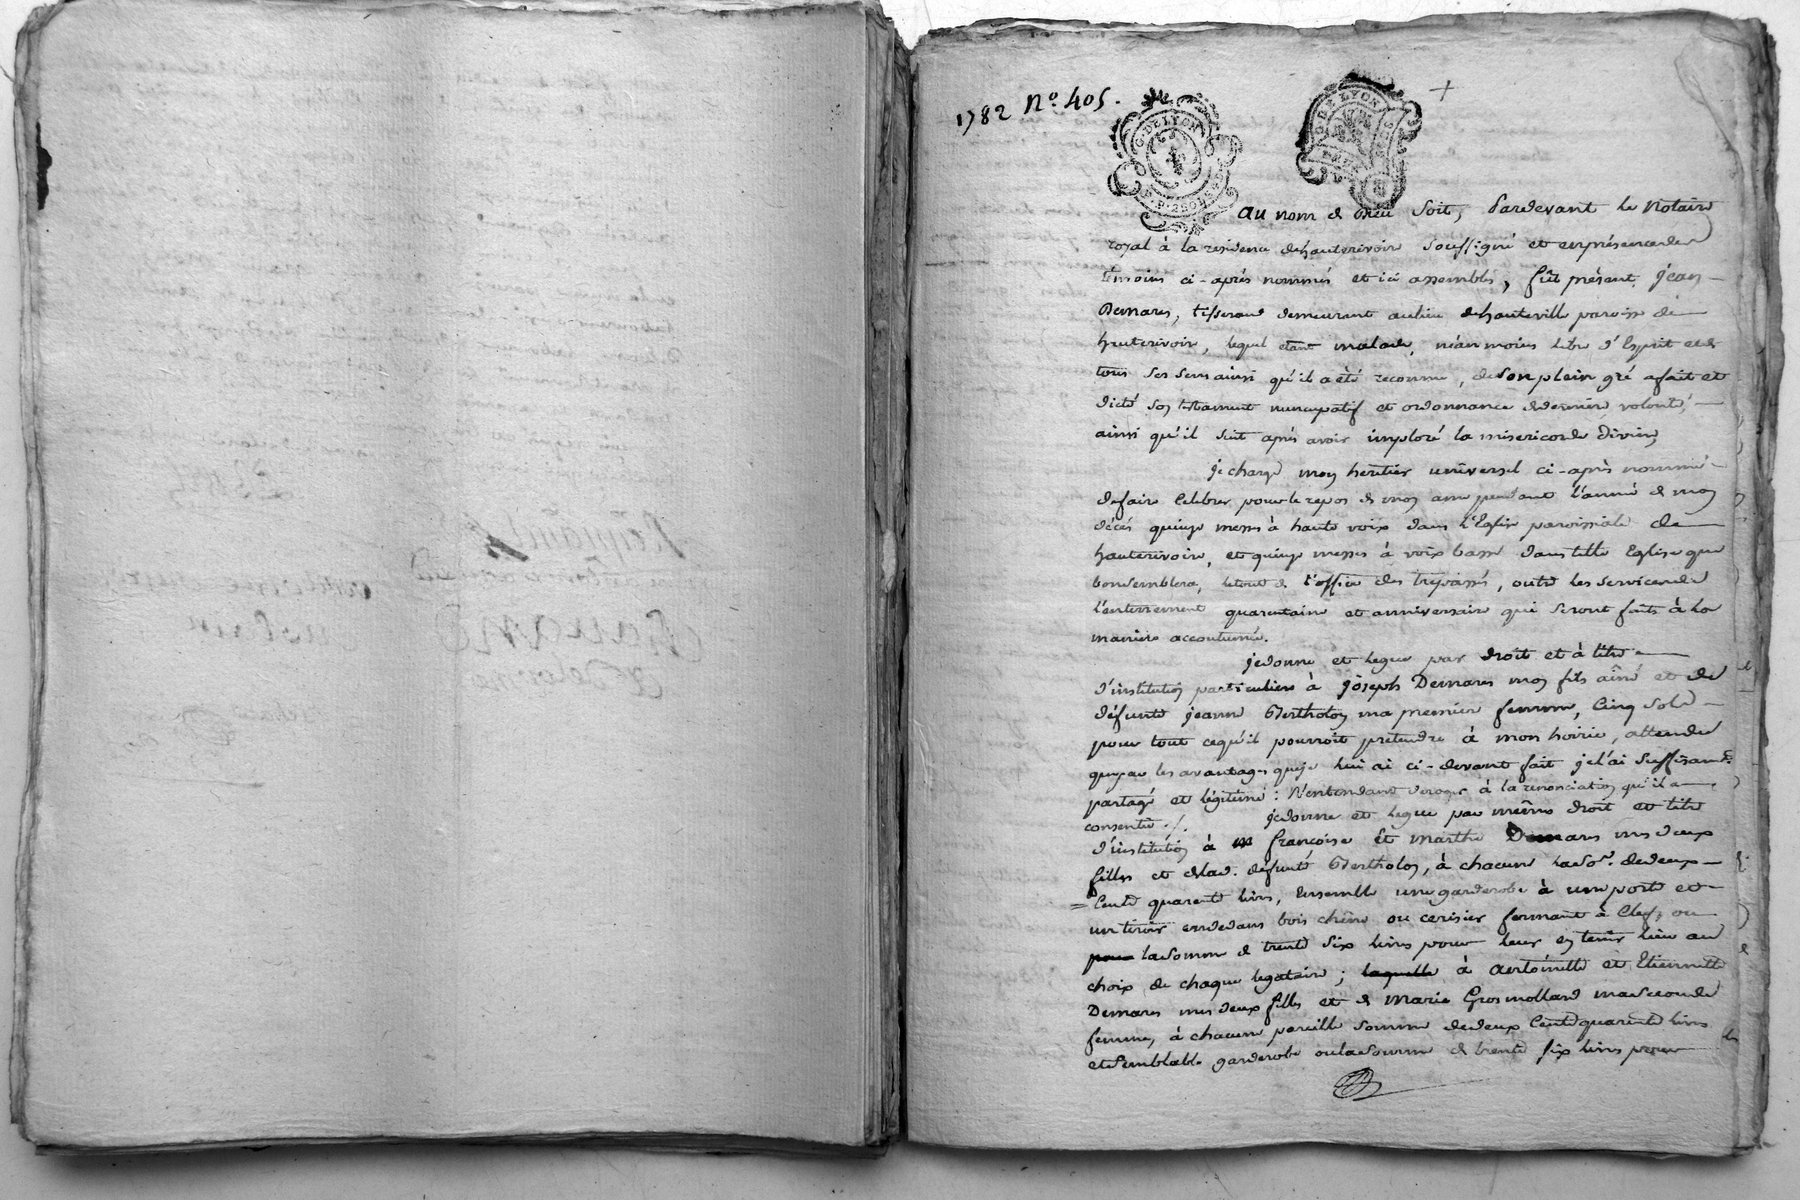 1782 N.º 405.
G. DE LYON
P. P. 2 SOLS
G. DE LYON
au nom de Dieu soit, Pardevant le Notaire
royal à la residence dehauterivoire soussigné et enprésencedes
temoins ci-après nommés et ici assemblés, fût présent, jean
Demares, tisserand demeurant aulieu dehauteville paroisse de
hauterivoire, lequel etant malade, néanmoins libre d'Esprit etde
tous ses sens ainsi qu'il a été reconnu, de son plein gré a fait et
dicté son testament nuncupatif et ordonnance dedernière volonté,
ainsi qu'il suit après avoir imploré la misericorde divine,
je charge mon heritier universel ci-après nommé
defaire celebrer pour le repos de mon ame pendant l'année de mon
décés quinze messes à haute voix dans l'Eglise paroissiale de
hauterivoire, et quinze messes à voix basse dans telle Eglise que
bonsemblera, letout de l'office des trepassés, outre les services de
l'enterrement quarantaine et anniversaire qui seront faits à la
maniere accoutumée.
jedonne et legue par droit et à titre
d'institution particuliere à joseph Demares mon fils aîné et de
défunte jeanne Bertholon ma premiere femme, Cinq Sols
pour tout cequ'il pourroit pretendre à mon hoirie, attendu
quepar les avantages queje lui ai ci-devant fait je l'ai suffisamt.
partagé et légitimé : N'entendant deroger à la renonciation qu'il a
consentie ./. jedonne et legue par même droit et titre
d'institution à françoise et marthe Demares mes deux
filles et delad. défunte Bertholon, à chacune lasoe. dedeux
Cents quarente livres, Ensemble une garderobe à une porte et
un tiroir endedans bois chêne ou cerisier fermant à Clef, ou
pour lasomme de trente six livres pour leur en tenir lieu au
choix de chaque legataire ; laquelle à antoinette et Etiennette
Demares mes deux filles et de Marie Grosmollard maseconde
femme, à chacune pareille somme dedeux Cents quarente livres
et semblable garderobe ou lasomme de trente six livres pour